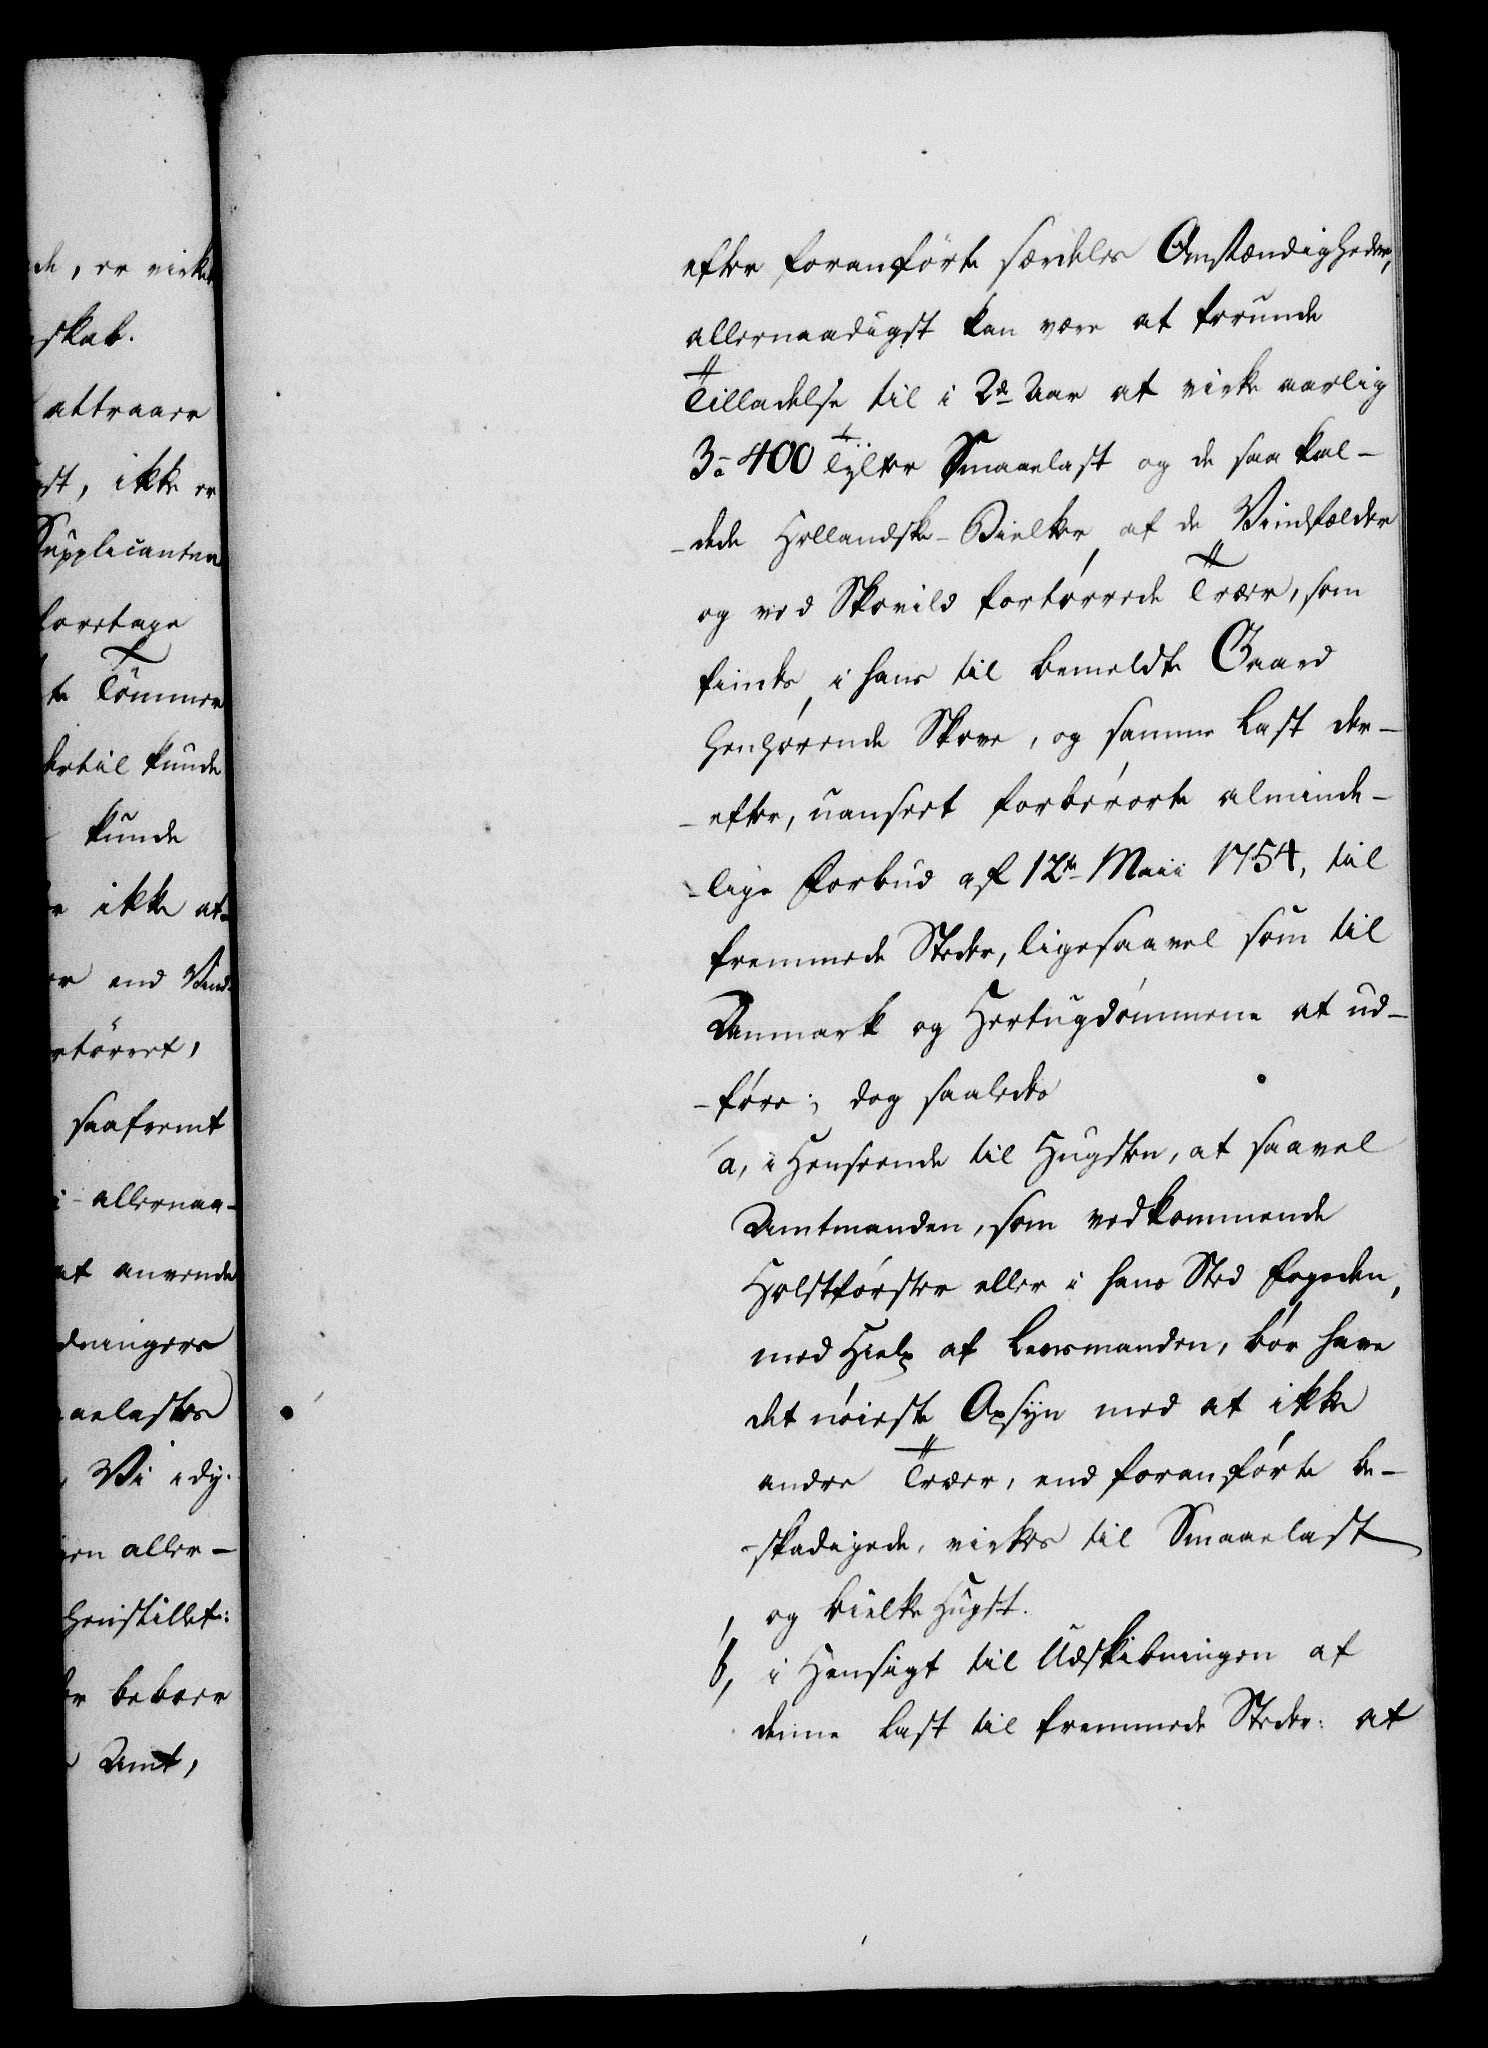 de, er virket
skab.
attraaer
st, ikke er
Supplicanten
foretage
te Tömmer
dertil kunde
kunde
e ikke at-
er end Vind-
rtörret,
saafremt
i allernaa-
at anvende
dningers
aelastes
Vi i dy-
en aller-
henstillet:
beboer
Amt,
efter foranförte særdeles Omstændigheder,
allernaadigst kan være at forunde
Tilladelse til i 2de Aar at virke aarlig
3 a 400 Tylter Smaaelast og de saa kal-
-dede Hollandske-Bielker af de Vindfælder
og ved Skovild fortörrede Træer, som
findes i hans til bemeldte Gaard
henhörende Skove, og samme Last der-
-efter, uanseet forberörte alminde-
-lige Forbud af 12te Maii 1754, til
fremmede Steder, ligesaavel som til
Danmark og Hertugdömmene at ud-
-före; dog saaledes
a, i Henseende til Hugsten, at saavel
Amtmanden, som vedkommende
Holtzförster eller i hans Sted Fogeden,
med Hielp af Lensmanden, bör have
det nöieste Opsyn med at ikke
andre Træer, end foranförte be-
-skadigede, virkes til Smaaelast
og Bielke Hugst.
b, i Hensigt til Udskibningen af
denne Last til fremmede Steder: at